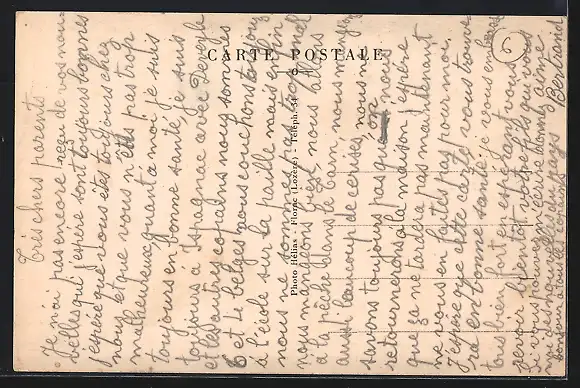 CARTE POSTALE
Photo Hélias - Florac (Lozère) - Téléph. 54
6
Très chers parents
Je n'ai pas encore reçu de vos nou-
velles qui j'espère sont toujours bonnes
j'espère que vous êtes toujours chez
nous et que vous n'êtes pas trop
malheureux quant a moi je suis
toujours en bonne santé, je suis
toujours a Ispagnac avec Deverle
et les autres copains nous sommes
et si belges nous couchons
à l'école sur la paille mais enfin
nous ne sommes pas trop mal
nous mangeons assez nous allons
à la pêche dans le Tarn, nous mangeons
aussi beaucoup de cerises, nous ne
savons toujours pas quand nous
retournerons a la maison j'espère
que sa ne tardera pas maintenant
ne vous en faites pas pour moi
J'espère que cette carte vous trouve-
ra en bonne santé je vous embrasse
tous bien fort en espérant vous
revoir bientôt votre fils qui vous aime
si vous pouvez m'écrire donnez
Bertrand